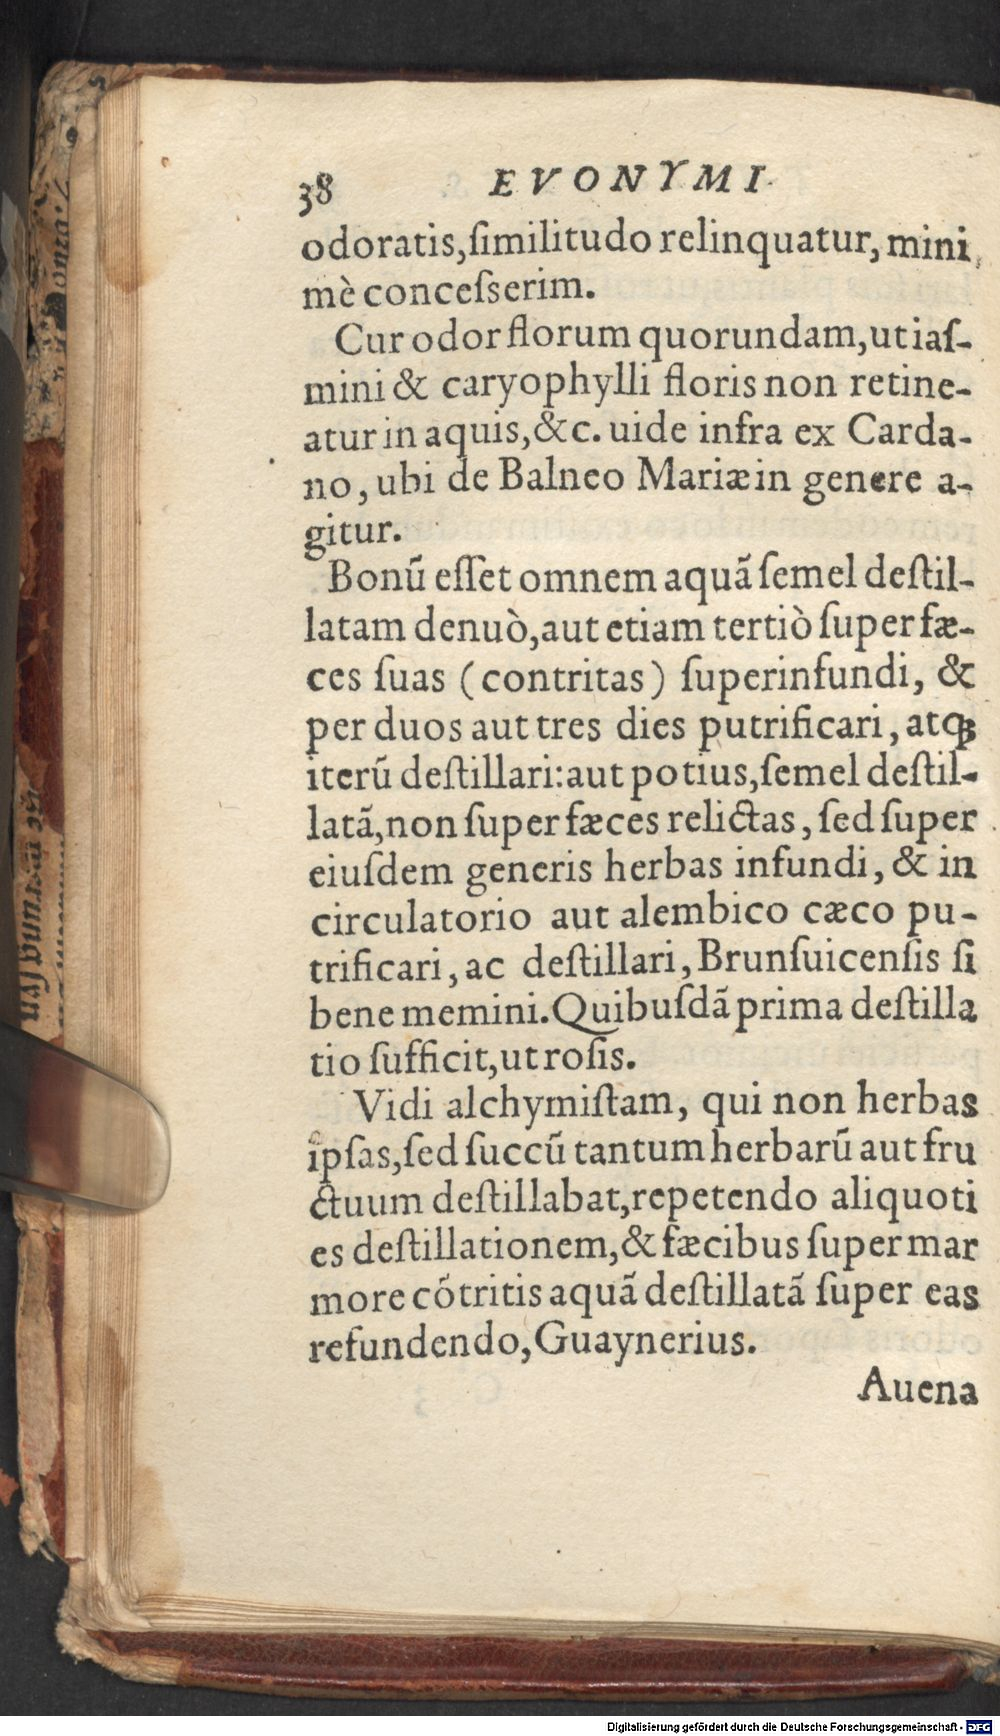 38 EVONYMI
odoratis,ſimilitudo relinquatur, mini
mè conceſserim.
Cur odor florum quorundam,ut iaſ-
mini & caryophylli floris non retine-
atur in aquis,&c. uide infra ex Carda-
no, ubi de Balneo Mariæ in genere a-
gitur.
Bonũ eſſet omnem aquã ſemel deſtil-
latam denuò,aut etiam tertiò ſuper fæ-
ces ſuas (contritas) ſuperinfundi, &
per duos aut tres dies putrificari, atq;
iterũ deſtillari:aut potius,ſemel deſtil-
latã,non ſuper fæces relictas, ſed ſuper
eiuſdem generis herbas infundi, & in
circulatorio aut alembico cæco pu-
trificari, ac deſtillari, Brunſuicenſis ſi
bene memini. Quibuſdã prima deſtilla
tio ſufficit,ut roſis.
Vidi alchymiſtam, qui non herbas
ipſas,ſed ſuccũ tantum herbarũ aut fru
ctuum deſtillabat,repetendo aliquoti
es deſtillationem,& fæcibus ſuper mar
more cõtritis aquã deſtillatã ſuper eas
refundendo, Guaynerius.
Auena
Digitalisierung gefördert durch die Deutsche Forschungsgemeinschaft - DFG